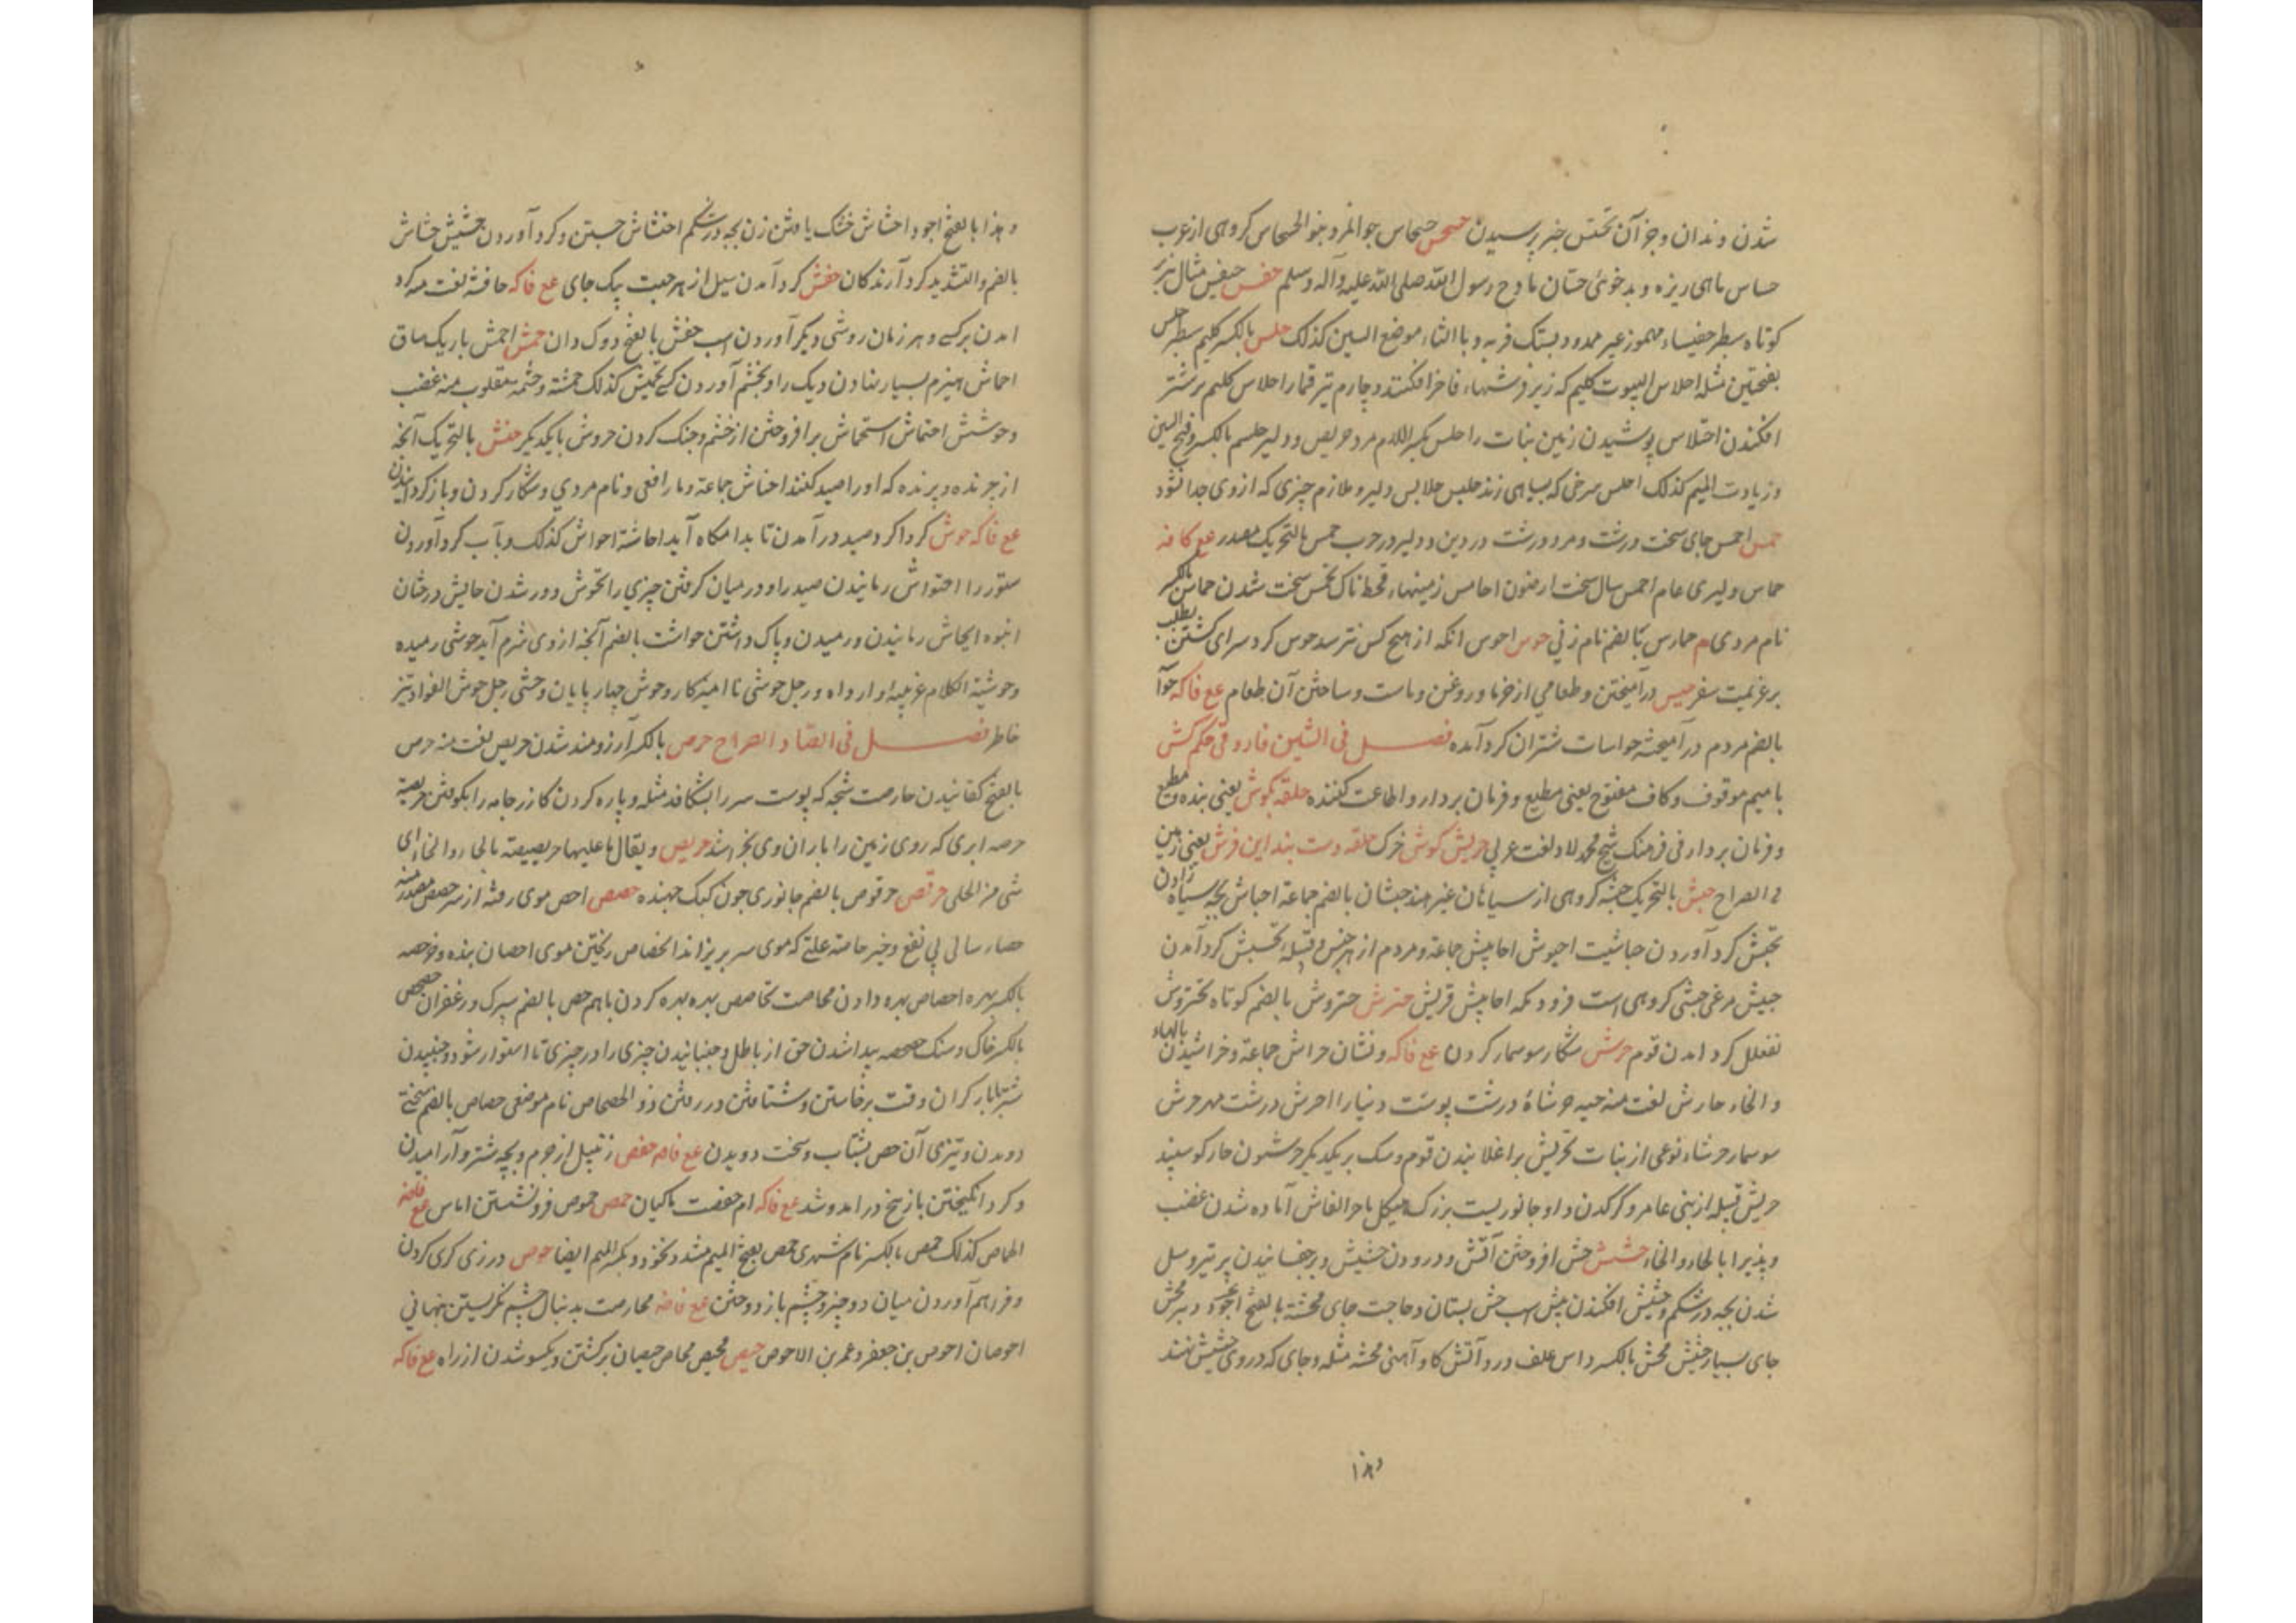 شدن دندان و جز آن تحسس خبر پرسیدن حسحس حسحاس جوانمرد بنو الحسحاس کروهی از عرب
حساس ماهی ریزه و بدخوئی حسان مادح رسول الله صلی الله علیه وآله وسلم حفس حیفس مثال هزبر
کوتاه سطبر حفیساء مهموز غیر ممدود بستک فربه و بالثاء موضع السین کذلک حلس بالکسر کلیم سطبر احلس
بفتحتین مثله احلاس البیوت کلیم که زیر فرشهاء فاخر افکنند و چارم تیر قمار احلاس کلیم بر شتر
افکندن احتلاس پوشیدن زمین نبات را حلس بکسر اللام مرد حریص و دلیر حلسم بالکسر وفتح السین
وزیادت المیم کذلک احلس سرخی که بسیاهی زند حلبس حلابس دلیر و ملازم چیزی که ازوی جدا نشود
حمس احمس جای سخت درشت و مرد درشت در دین و دلیر در حرب حمس بالتحریک مصدر ع کافه
حماس دلیری عام احمس سال سخت ارضون احامس زمینهاء قحط ناک تحمس سخت شدن حماس بالکسر
نام مردی م حمارس بالضم نام زنی حوس احوس انکه از هیچ کس نترسد حوس کرد سرای کشتن بطلب
بر غنیمت سفر حیس درآمیختن و طعامی از خرما و روغن و ماست و ساختن آن طعام ع فاکه حوآ
بالضم مردم درآمیخته حواسات شتران کرد آمده فصل فی الشین فارو قی حکم کش
با میم موقوف و کاف مفتوح یعنی مطیع و فرمان بردار و اطاعت کننده حلقه بکوش یعنی بنده و مطیع
و فرمان بردار فی فرهنک شیخ محمد لاد لغت عربی حریش کوش خرک حلقه دست بند این فرش یعنی زمین
فی الصراح حبش بالتحریک حبشه کروهی از سیاهان غیر هند حبشان بالضم جماعة احباش بچه سیاه زادن
تحبش کرد آوردن حباشیت احبوش احابیش جماعة و مردم از هر جنس و قبیله تحبش کرد آمدن
حبیش مرغی حبشی کروهی است فرود مکه احابیش قریش حترش حتروش بالضم کوتاه تحتروش
تفعلل کرد امدن قوم حرش شکار سوسمار کردن ع فاکه و نشان حراش جماعة و خراشیدن بالهاء
و الخاء حارش لغت منه حیه حرشاء درشت پوست دنیار احرش درشت مهر حرش
سوسمار حرشاء نوعی از نبات تحریش بر اغلانیدن قوم و سک بر یکدیکر حرشون خار کوسپند
حریش قبیله از بنی عامر و کرکدن و او جانوریست بزرک هیکل باحرالفاش آماده شدن غضب
و پذیرا بالحاء والخاء حشش حش افروختن آتش و درودن حشیش و پرچفسانیدن بر تیر و سل
شدن بچه در شکم و حشیش افکندن پیش اسب حش بستان و حاجت جای محشة بالفتح اجوک دبر محش
جای بسیار حشیش محش بالکسر داس علف درو آتش کاو آهنی محشه مثله و جای که در وی حشیش نهند
وهذا
وهذا بالفتح اجود احشاش خشک یافتن زن بچه در شکم احتشاش جستن و کرد آوردن حشیش حشاش
بالضم والتشدید کرد آرندکان حفش کرد آمدن سیل از هر جهت بیک جای ع فاکه حافشه لغت منه کرد
امدن بر کسی و هر زمان روشی دیکر آوردن اسب حفش بالفتح دوک دان حمش احمش باریک ساق
احماش هیزم بسیار نهادن دیک را و بخشم آوردن کسی تحمیش کذلک حمشة و حشمه مقلوب منه غضب
وحوشش احتماش استحماش برافروختن از خشم و جنک کردن خروش بایکدیکر حنش بالتحریک آنچه
از چرنده و پرنده که اورا صید کنند احناش جماعة و مار افعی و نام مردی و شکار کردن و باز کردانیدن
ع فاکه حوش کرداکرد صید درآمدن تا بدامکاه آید احاشة احواش کذلک و بآب کرد آوردن
ستور را احتواش رمانیدن صید را و درمیان کرفتن چیزی را تحوش دور شدن حایش درختان
انبوه ایحاش رمانیدن و رمیدن و پاک داشتن حواشت بالضم آنچه ازوی شرم آید حوشی رمیده
وحوشیة الکلام غریبه او اراد اه و رجل حوشی ناامیزکار و حوش چهارپایان وحشی رجل حوش الفواد تیز
خاطر فصل فی الصاد الصراح حرص بالکسر آرزومند شدن حریص لغت منه حرص
بالفتح کفانیدن حارصت شجه که پوست سر را بشکافد مثله و پاره کردن کازر جامه را بکوفتن حریصة
حرصه ابری که روی زمین را باران وی بخراشد حربص و یقال ما علیها حربصیصة بالحاء والخاء ای
شی من الحلی حرقص حرقوص بالضم جانوری چون کیک جهنده حصص احص موی رفته از سر حصص مصدر منه
حصاء سالی بی نفع و خیر حاصه علتی که موی سر بریزاند انحصاص ریختن موی احصان بنده و خر حصه
بالکسر بهره احصاص بهره دادن محاصت تحاصص بهره بهره کردن باهم حص بالضم سپرک و زعفران حصحص
بالکسر خاک و سنک حصحصه پیدا شدن حق از باطل و جنبانیدن چیزی را در چیزی تا استوار شود و جنبیدن
شتر بابار کران وقت برخاستن و شتافتن در رفتن ذو الحصحاص نام موضعی حصاص بالضم سختی
دویدن و تیزی آن حص بشتاب و سخت دویدن ع فامه حفص زنبیل از چرم و بچه شتر و آرامیدن
و کرد انکیختن باز سخ درامد و شد ع فاکه ام حفصت ماکیان حمص حموص فرونشستن اماس ع فاضه
الحماص کذلک حمص بالکسر نام شهری حمص بفتح المیم مشدد نخود و بکسر المیم ایضا حوص درزی کری کردن
و فراهم آوردن میان دو چیز و چشم باز دوختن ع فاضه محاوصت بدنبال چشم نکریستن بنهانی
احوصان احوص بن جعفر و عمر بن الاحوص حیص محیص محاص حیصان برکشتن و یکسو شدن از راه ع فاکه